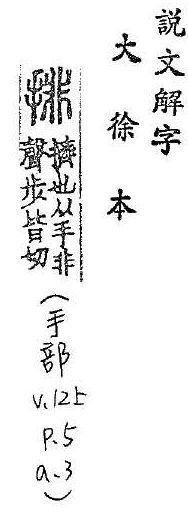 説文解字
大徐本
排
擠也从手非
聲步皆切
(手部
v.12上
p.5
a.3)